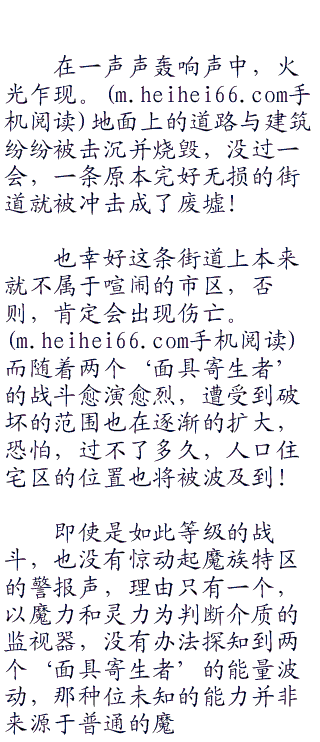 在一声声轰响声中，火
光乍现。(m.heihei66.com手
机阅读)地面上的道路与建筑
纷纷被击沉并烧毁，没过一
会，一条原本完好无损的街
道就被冲击成了废墟！
也幸好这条街道上本来
就不属于喧闹的市区，否
则，肯定会出现伤亡。
(m.heihei66.com手机阅读)
而随着两个‘面具寄生者’
的战斗愈演愈烈，遭受到破
坏的范围也在逐渐的扩大，
恐怕，过不了多久，人口住
宅区的位置也将被波及到！
即使是如此等级的战
斗，也没有惊动起魔族特区
的警报声，理由只有一个，
以魔力和灵力为判断介质的
监视器，没有办法探知到两
个‘面具寄生者’的能量波
动，那种位未知的能力并非
来源于普通的魔